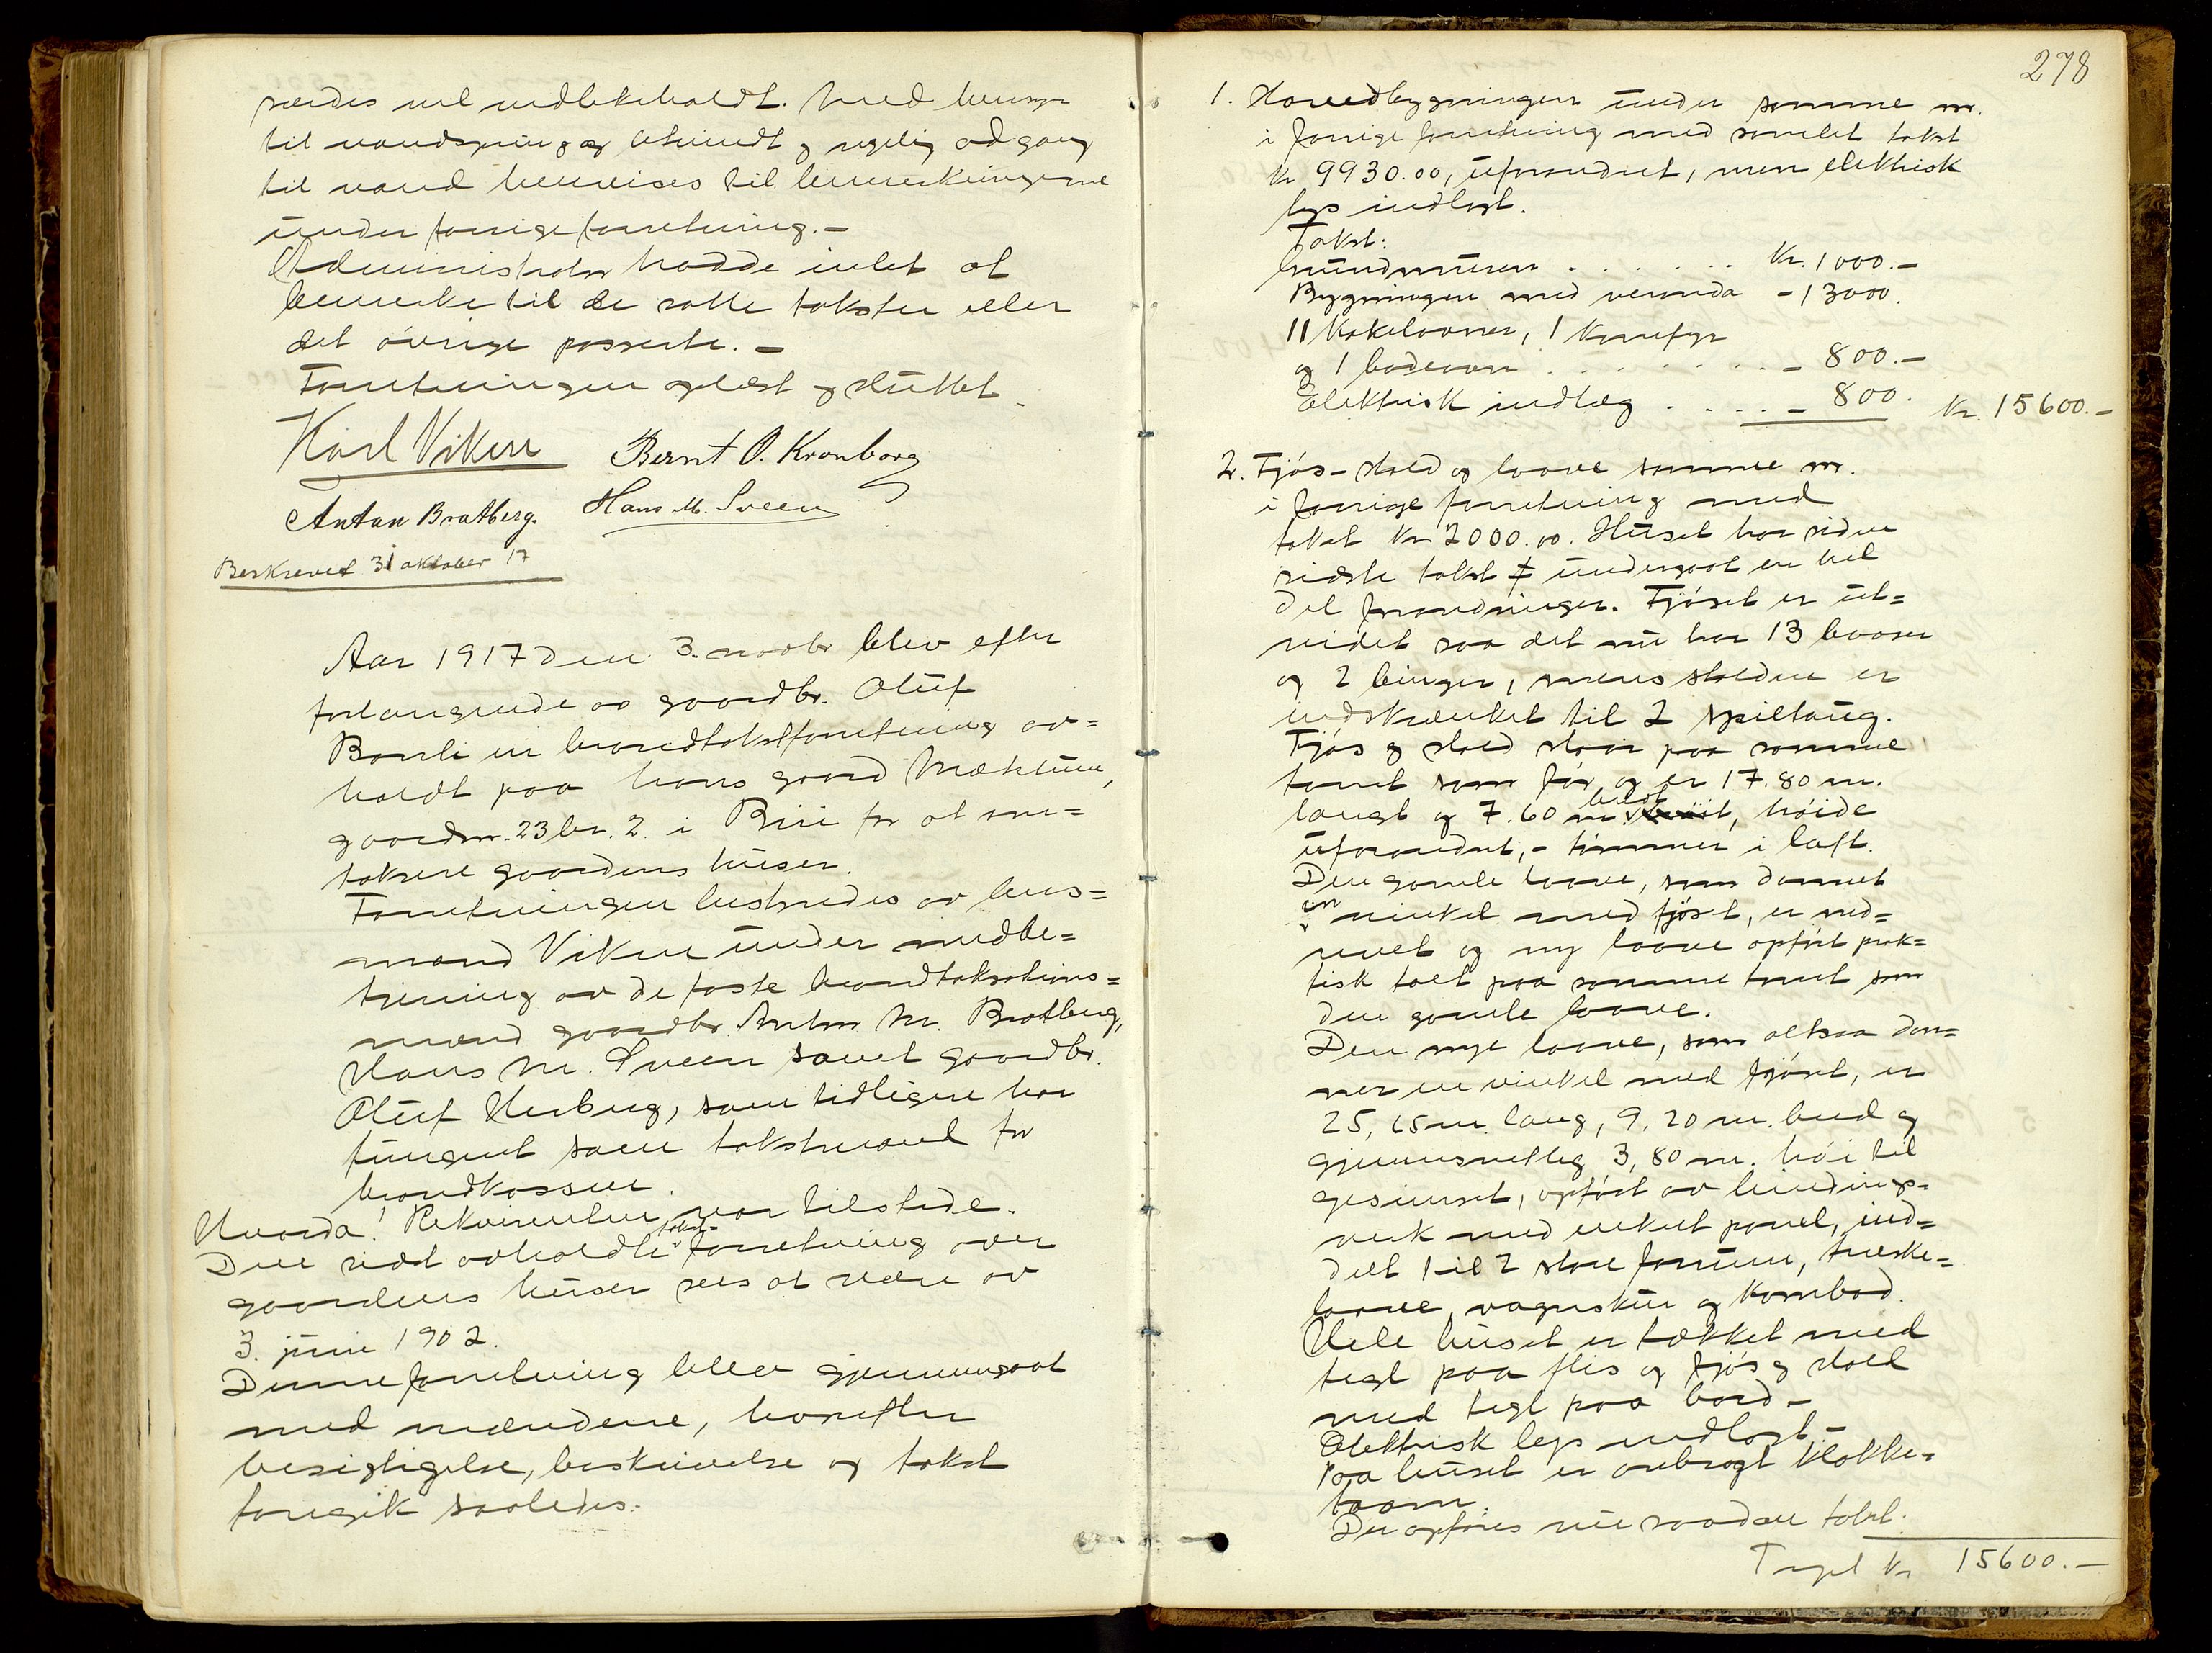 sees vel vedlikeholdt. Med hensyn
til vandspring og bekvemt og rigelig adgang
til vand henvises til bemerkningerne
under forrige forretning.-
Administrator hadde intet at
bemerke til de satte takster eller
det øvrige passerte. -
Forretningen oplæst og sluttet.
Karl Viken Bernt O. Kronborg
Anton Bratberg. Hans M. Sveen
Beskrevet 31 oktober 17
Aar 1917 den 3. novbr blev efter
forlangende av gaardbr. Oluf
en brandtakstforretning av=
holdt paa hans gaard
gaardnr. 23 br. 2. i Biri for at om=
taksere gaardens huser.
Forretningen bestyredes av lens=
mand Viken under medbe=
tjening av de faste brandtaksations=
mænd gaardbr. Anton M. Bratberg,
Hans M. Sveen samt gaardbr.
Oluf som tidligere har
fungeret som takstmand for
brandkassen.
Hvorda! Rekvirenten var tilstede.
Den sidst avholdte takst=forretning over
gaardens huser sees at være av
3. juni 1902.
Denne forretning blev gjennemgaat
med mændene, hvorefter
besigtigelse, beskrivelse og takst
foregik saaledes:
278
1. Hovedbygningen under samme nr.
i forrige forretning med samlet takst
kr 9930.00, uforandret, men elektrisk
lys indlagt.
Takst:
Grundmuren . . . . . . Kr. 1000.-
Bygningen med veranda - 13000.
11 kakelovner, 1 komfyr
og 1 badeovn . . . . . . . - 800.-
Elektrisk indlæg . . . . - 800. Kr. 15600.-
2. Fjøs- stald og laave samme nr.
i forrige forretning med
takst Kr 2000.00. Huset har siden
sidste takst undergaat en hel
del forandringer. Fjøset er ut=
videt saa det nu har 13 baaser
og 2 binger, mens stalden er
indskrænket til 2 spiltaug.
Fjøs og stald staar paa samme
tomt som før og er 17.80 m.
langt og 7.60 m. bredt, høide
uforandret,- tømmer i laft.
Den gamle laave, som dannet
en vinkel med fjøset, er ned=
revet og ny laave opført prak=
tisk talt paa samme tomt som
den gamle laave.
Den nye laave, som altsaa dan=
ner en vinkel med fjøset, er
25,65 m. lang, 9,20 m. bred og
gjennemsnitlig 3,80 m. høi til
gesimset, opført av bindings-
verk med enkelt panel, ind=
delt til 2 store forrum, træske=
laave, vognskur og kornbod.
Hele huset er tækket med
tegl paa flis og fjøs og stald
med tegl paa bord -
Elektrisk lys indlagt -
Paa huset er anbragt klokke=
taarn.
Der opføres nu saadan takst.
Trspt kr 15600.-